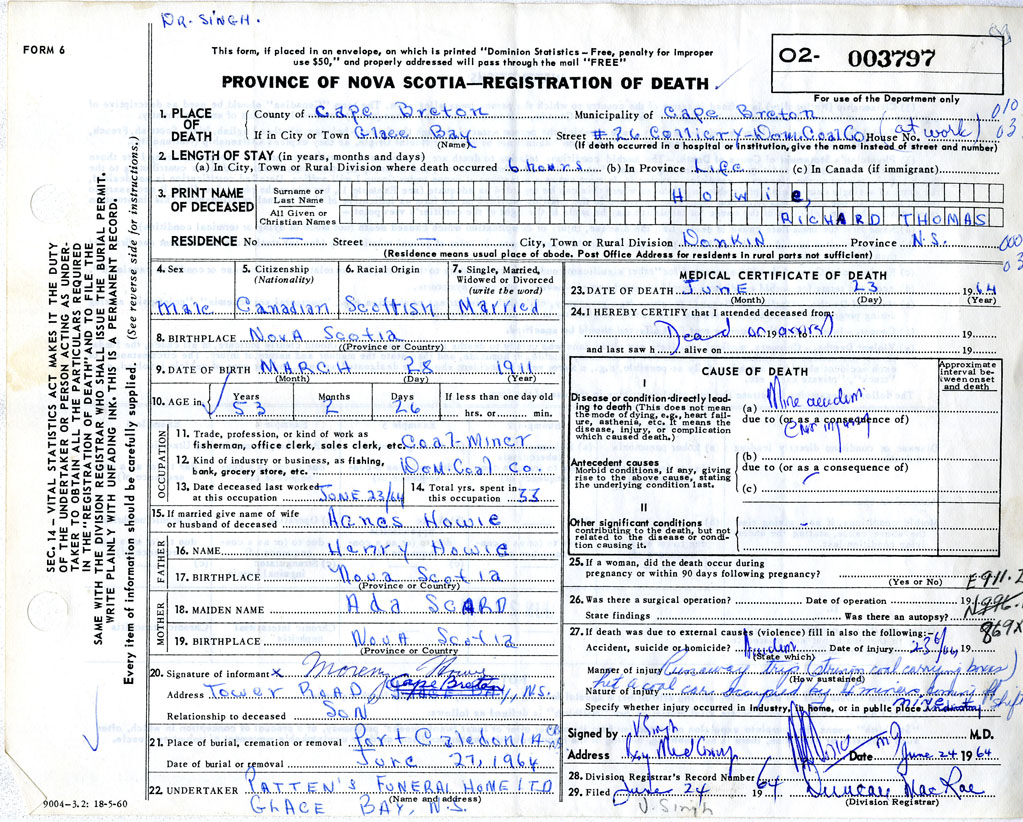 DR. SINGH.
FORM 6
This form, if placed in an envelope, on which is printed "Dominion Statistics – Free, penalty for improper
use $50," and properly addressed will pass through the mail "FREE"
O2- 003797
PROVINCE OF NOVA SCOTIA—REGISTRATION OF DEATH
For use of the Department only
1. PLACE OF DEATH
County of Cape Breton Municipality of Cape Breton 010
If in City or Town Glace Bay Street #26 Colliery-Dom.Coal Co House No. (at work) 03
(Name) (If death occurred in a hospital or institution, give the name instead of street and number)
2. LENGTH OF STAY (in years, months and days)
(a) In City, Town or Rural Division where death occurred 6 hours (b) In Province Life (c) In Canada (if immigrant)
3. PRINT NAME OF DECEASED
Surname or Last Name Howie,
All Given or Christian Names RICHARD THOMAS
RESIDENCE No — Street — City, Town or Rural Division Donkin Province N.S. 000
(Residence means usual place of abode. Post Office Address for residents in rural parts not sufficient) 03
4. Sex 5. Citizenship (Nationality) 6. Racial Origin 7. Single, Married, Widowed or Divorced (write the word)
Male Canadian Scottish Married
8. BIRTHPLACE Nova Scotia
(Province or Country)
9. DATE OF BIRTH MARCH 28 1911
(Month) (Day) (Year)
10. AGE in Years Months Days If less than one day old
53 2 26 hrs. or min.
OCCUPATION
11. Trade, profession, or kind of work as
fisherman, office clerk, sales clerk, etc. Coal-Miner
12. Kind of industry or business, as fishing,
bank, grocery store, etc. Dom. Coal Co.
13. Date deceased last worked at this occupation JUNE 23/64 14. Total yrs. spent in this occupation 33
15. If married give name of wife
or husband of deceased Agnes Howie
FATHER
16. NAME Henry Howie
17. BIRTHPLACE Nova Scotia
(Province or Country)
MOTHER
18. MAIDEN NAME Ada SCARD
19. BIRTHPLACE Nova Scotia
(Province or Country)
20. Signature of informant x Howie
Address Tower Road Cape Breton, N.S.
Relationship to deceased SON
21. Place of burial, cremation or removal Port Caledonia
Date of burial or removal June 27, 1964
22. UNDERTAKER PATTEN'S FUNERAL HOME LTD
(Name and address)
GLACE BAY, N.S.
9004-3.2: 18-5-60
MEDICAL CERTIFICATE OF DEATH
23. DATE OF DEATH JUNE 23 1964
(Month) (Day) (Year)
24. I HEREBY CERTIFY that I attended deceased from:
Dead on arrival 19
and last saw h alive on 19
CAUSE OF DEATH
Approximate interval between onset and death
I
Disease or condition directly leading to death (This does not mean the mode of dying, e.g., heart failure, asthenia, etc. It means the disease, injury, or complication which caused death.)
(a) Mine accident
due to (or as a consequence of)
Antecedent causes
Morbid conditions, if any, giving rise to the above cause, stating the underlying condition last.
(b)
due to (or as a consequence of)
(c)
II
Other significant conditions
contributing to the death, but not related to the disease or condition causing it.
25. If a woman, did the death occur during
pregnancy or within 90 days following pregnancy?
(Yes or No) E911.
26. Was there a surgical operation? Date of operation 19
State findings Was there an autopsy?
27. If death was due to external causes (violence) fill in also the following:- 869X
Accident, suicide or homicide? Accident Date of injury 23/6 1964
(State which)
Manner of injury Runaway trip (string coal carrying boxes)
(How sustained)
Nature of injury hit a coal car occupied by miners
Specify whether injury occurred in industry, in home, or in public place mine industry
Signed by V Singh M.D.
Address Date June 24 1964
28. Division Registrar's Record Number
29. Filed June 24 1964 Duncan MacRae
(Division Registrar)
V. Singh
SEC. 14 – VITAL STATISTICS ACT MAKES IT THE DUTY
OF THE UNDERTAKER OR PERSON ACTING AS UNDER-
TAKER TO OBTAIN ALL THE PARTICULARS REQUIRED
IN THE "REGISTRATION OF DEATH" AND TO FILE THE
SAME WITH THE DIVISION REGISTRAR WHO SHALL ISSUE THE BURIAL PERMIT.
WRITE PLAINLY WITH UNFADING INK. THIS IS A PERMANENT RECORD.
Every item of information should be carefully supplied. (See reverse side for instructions.)